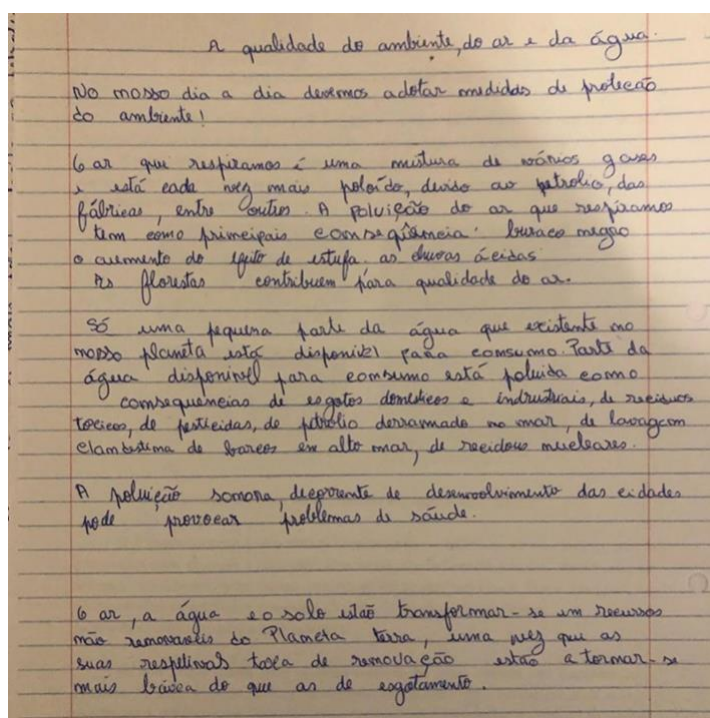 A qualidade do ambiente, do ar e da água.
No nosso dia a dia devemos adotar medidas de proteção
do ambiente!
O ar que respiramos é uma mistura de vários gases
e está cada vez mais poloído, devido ao petrolio, das
fábricas, entre outros. A poluição do ar que respiramos
tem como primeipais consequência: buraco negro
o aumento do efeito de estufa. as chuvas ácidas
As florestas contribuem para qualidade do ar.
Só uma pequena parte da água que existente no
nosso planeta está disponivel para consumo. Parte da
água disponivel para consumo está poluida como
consequências de esgotos domésticos e indrustriais, de reciduos
tocicos, de pesticidas, de petrolio derramado no mar, de lavagem
clandestina de barcos em alto mar, de recidous nucleares.
A poluição sonora, decorrente de desenvolvimento das cidades
pode provocar problemas de saúde.
O ar, a água e o solo estão transformar-se em recursos
não renovaveis do Planeta terra, uma vez que as
suas respetivas taxa de renovação estão a tornar-se
mais baixa do que as de esgotamento.